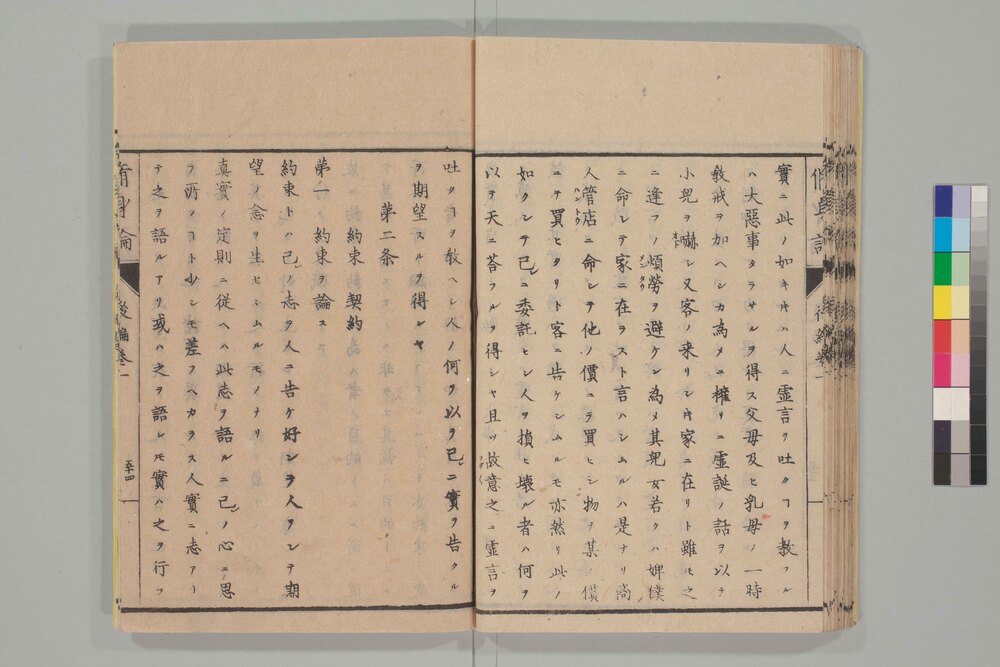 實ニ此ノ如キハ人ニ虚言ヲ吐クヿヲ教フル
ハ大惡事タラサルヲ得ス父母及ヒ乳母ノ一時
教戒ヲ加ヘシカ為メニ擅リニ虚誕ノ話ヲ以テ
小兒ヲ嚇シ又客ノ来リシ𪜈家ニ在リト雖𪜈之
ニ逢フノ煩勞ヲ避ケン為メ其兒女若クハ婢僕
ニ命シテ家ニ在ラスト言ハシムルハ是ナリ商
人管店ニ命シテ他ノ價ニテ買ヒシ物ヲ某ノ價
ニテ買ヒタリト客ニ告ケシムルモ亦然リ此ノ
如クシテ己ニ委託セシ人ヲ損ヒ壊ル者ハ何ヲ
以テ天ニ荅フルヲ得ンヤ且ツ故意之ニ虚言ヲ
吐クヿヲ教ヘシ人ノ何ヲ以テ己ニ實ヲ告クル
ヲ期望スルヲ得ンヤ
第二条 約束契約
第一 約束ヲ論ス
約束トハ己ノ志ヲ人ニ告ケ好ンテ人ヲシテ期
望ノ念ヲ生セシムルモノナリ
真實ノ定則ニ従ヘハ此志ヲ語ルニ己ノ心ニ思
フ所ノヿト少シモ差フヘカラス人實ニ志アリ
テ之ヲ語ルアリ或ハ之ヲ語レ𪜈實ハ之ヲ行フ
脩身論 後編巻一
五十四